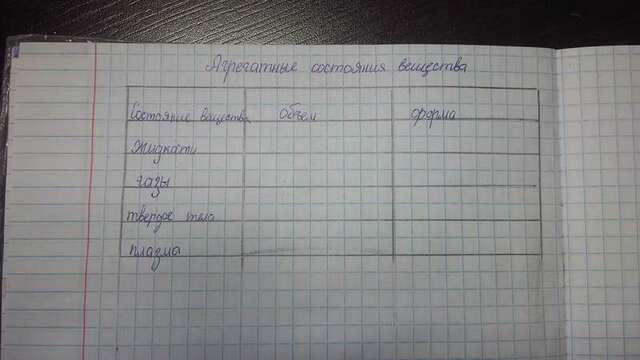 Агрегатные состояния вещества
Состояние вещества объем форма
жидкость
газы
твердое тело
плазма